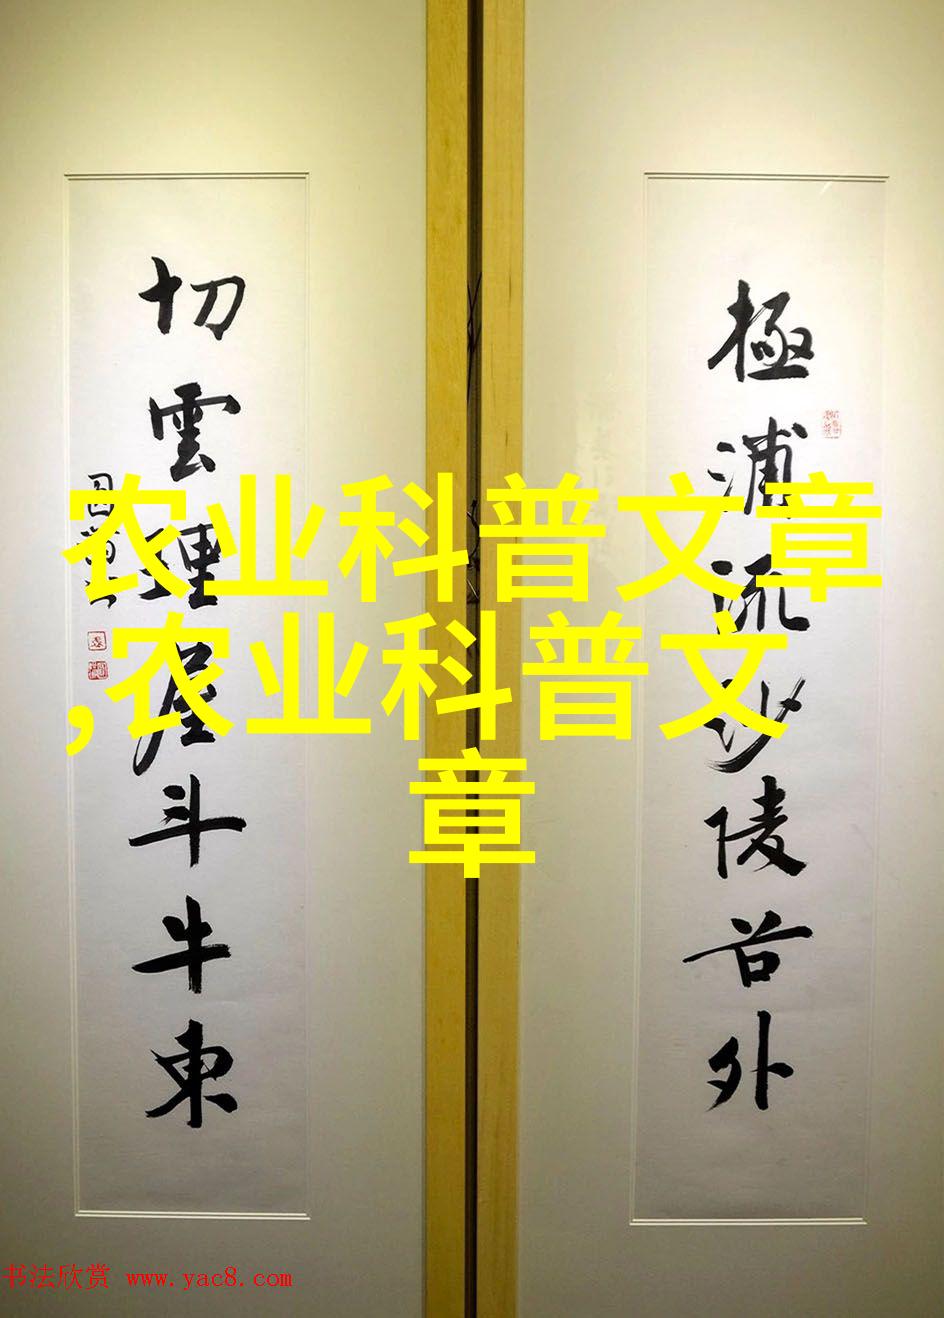 極浦流沙陵谷外
切雲屋斗牛東
农业科普文章
,农业科普文
章
书法欣赏 www.yac8.com